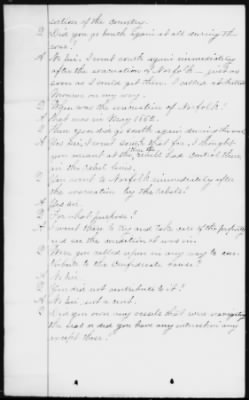 section of the country.
Q Did you go South again at all during the
war?
A No Sir, I went south again immediately
after the evacuation of Norfolk – just as
soon as I could get there. I called at
on my way.
Q When was the evacuation of Norfolk?
A That was in May 1862.
Q Then you did go South again during the war?
A Yes Sir, I went South that far, I thought
you meant at the time the rebels had control there,
in the rebel lines.
Q You went to Norfolk immediately after
the evacuation by the rebels?
A Yes sir.
Q For what purpose?
A I went there to try and take care of the property
and see the condition it was in.
Q Were you called upon in any way to con-
tribute to the Confederate cause?
A No Sir.
Q You did not contribute to it?
A No Sir, not a cent.
Q Did you own any vessels that were navigating
the seas or did you have any interest in any
except these?